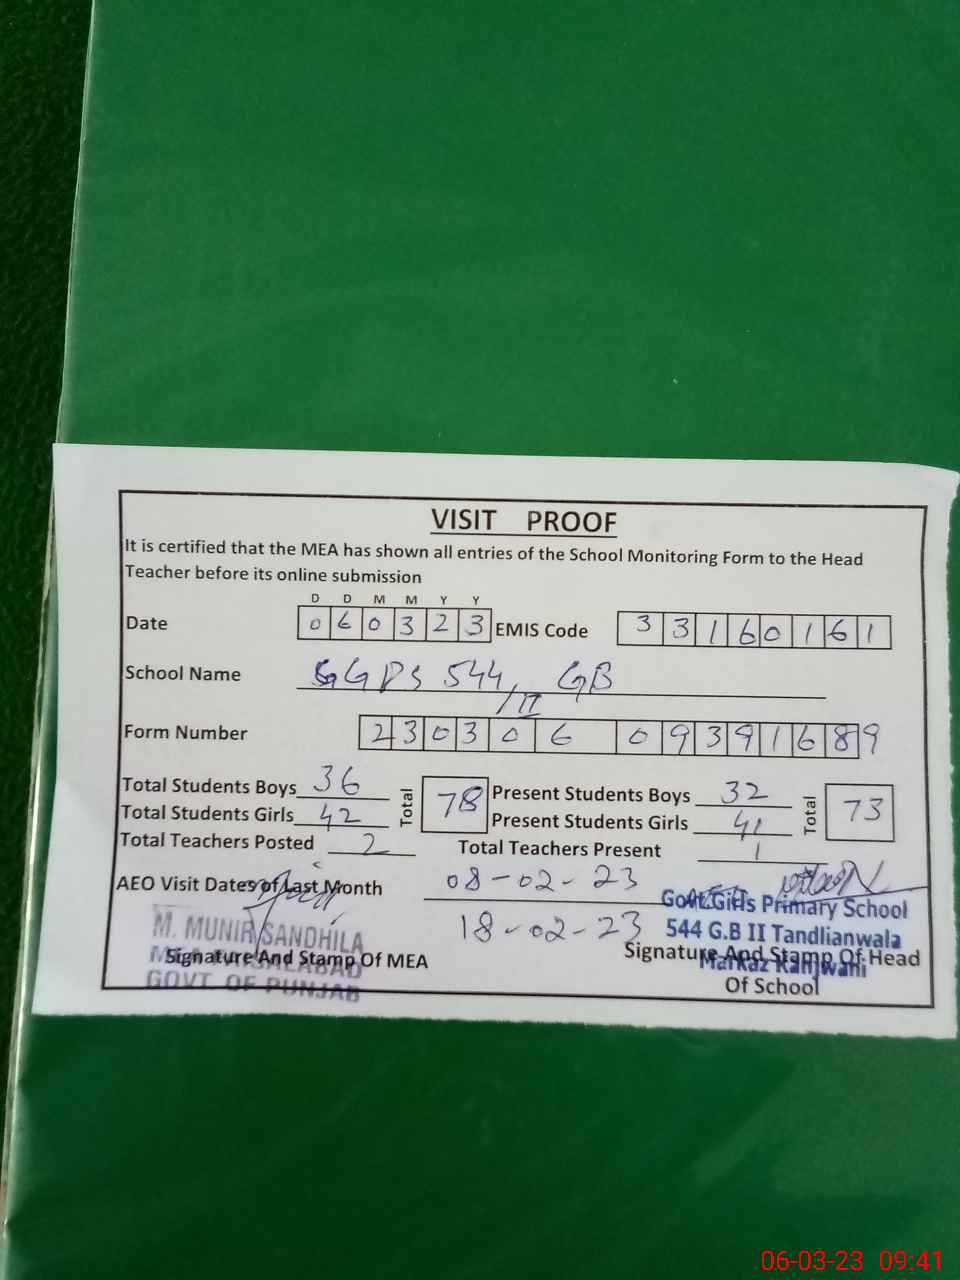 VISIT PROOF
It is certified that the MEA has shown all entries of the School Monitoring Form to the Head
Teacher before its online submission
D D M M Y Y
Date 0 6 0 3 2 3 EMIS Code 3 3 1 6 0 1 6 1
School Name GGPS 544/II GB
Form Number 2 3 0 3 0 6 0 9 3 9 1 6 8 9
Total Students Boys 36 Total 78 Present Students Boys 32 Total 73
Total Students Girls 42 Present Students Girls 41
Total Teachers Posted 2 Total Teachers Present 1
AEO Visit Dates of Last Month 08-02-23
18-02-23
Govt. Girls Primary School
544 G.B II Tandlianwala
Markaz Kanjwani
M. MUNIR SANDHILA
GOVT. OF PUNJAB
Signature And Stamp Of MEA
Signature And Stamp Of Head
Of School
06-03-23 09:41